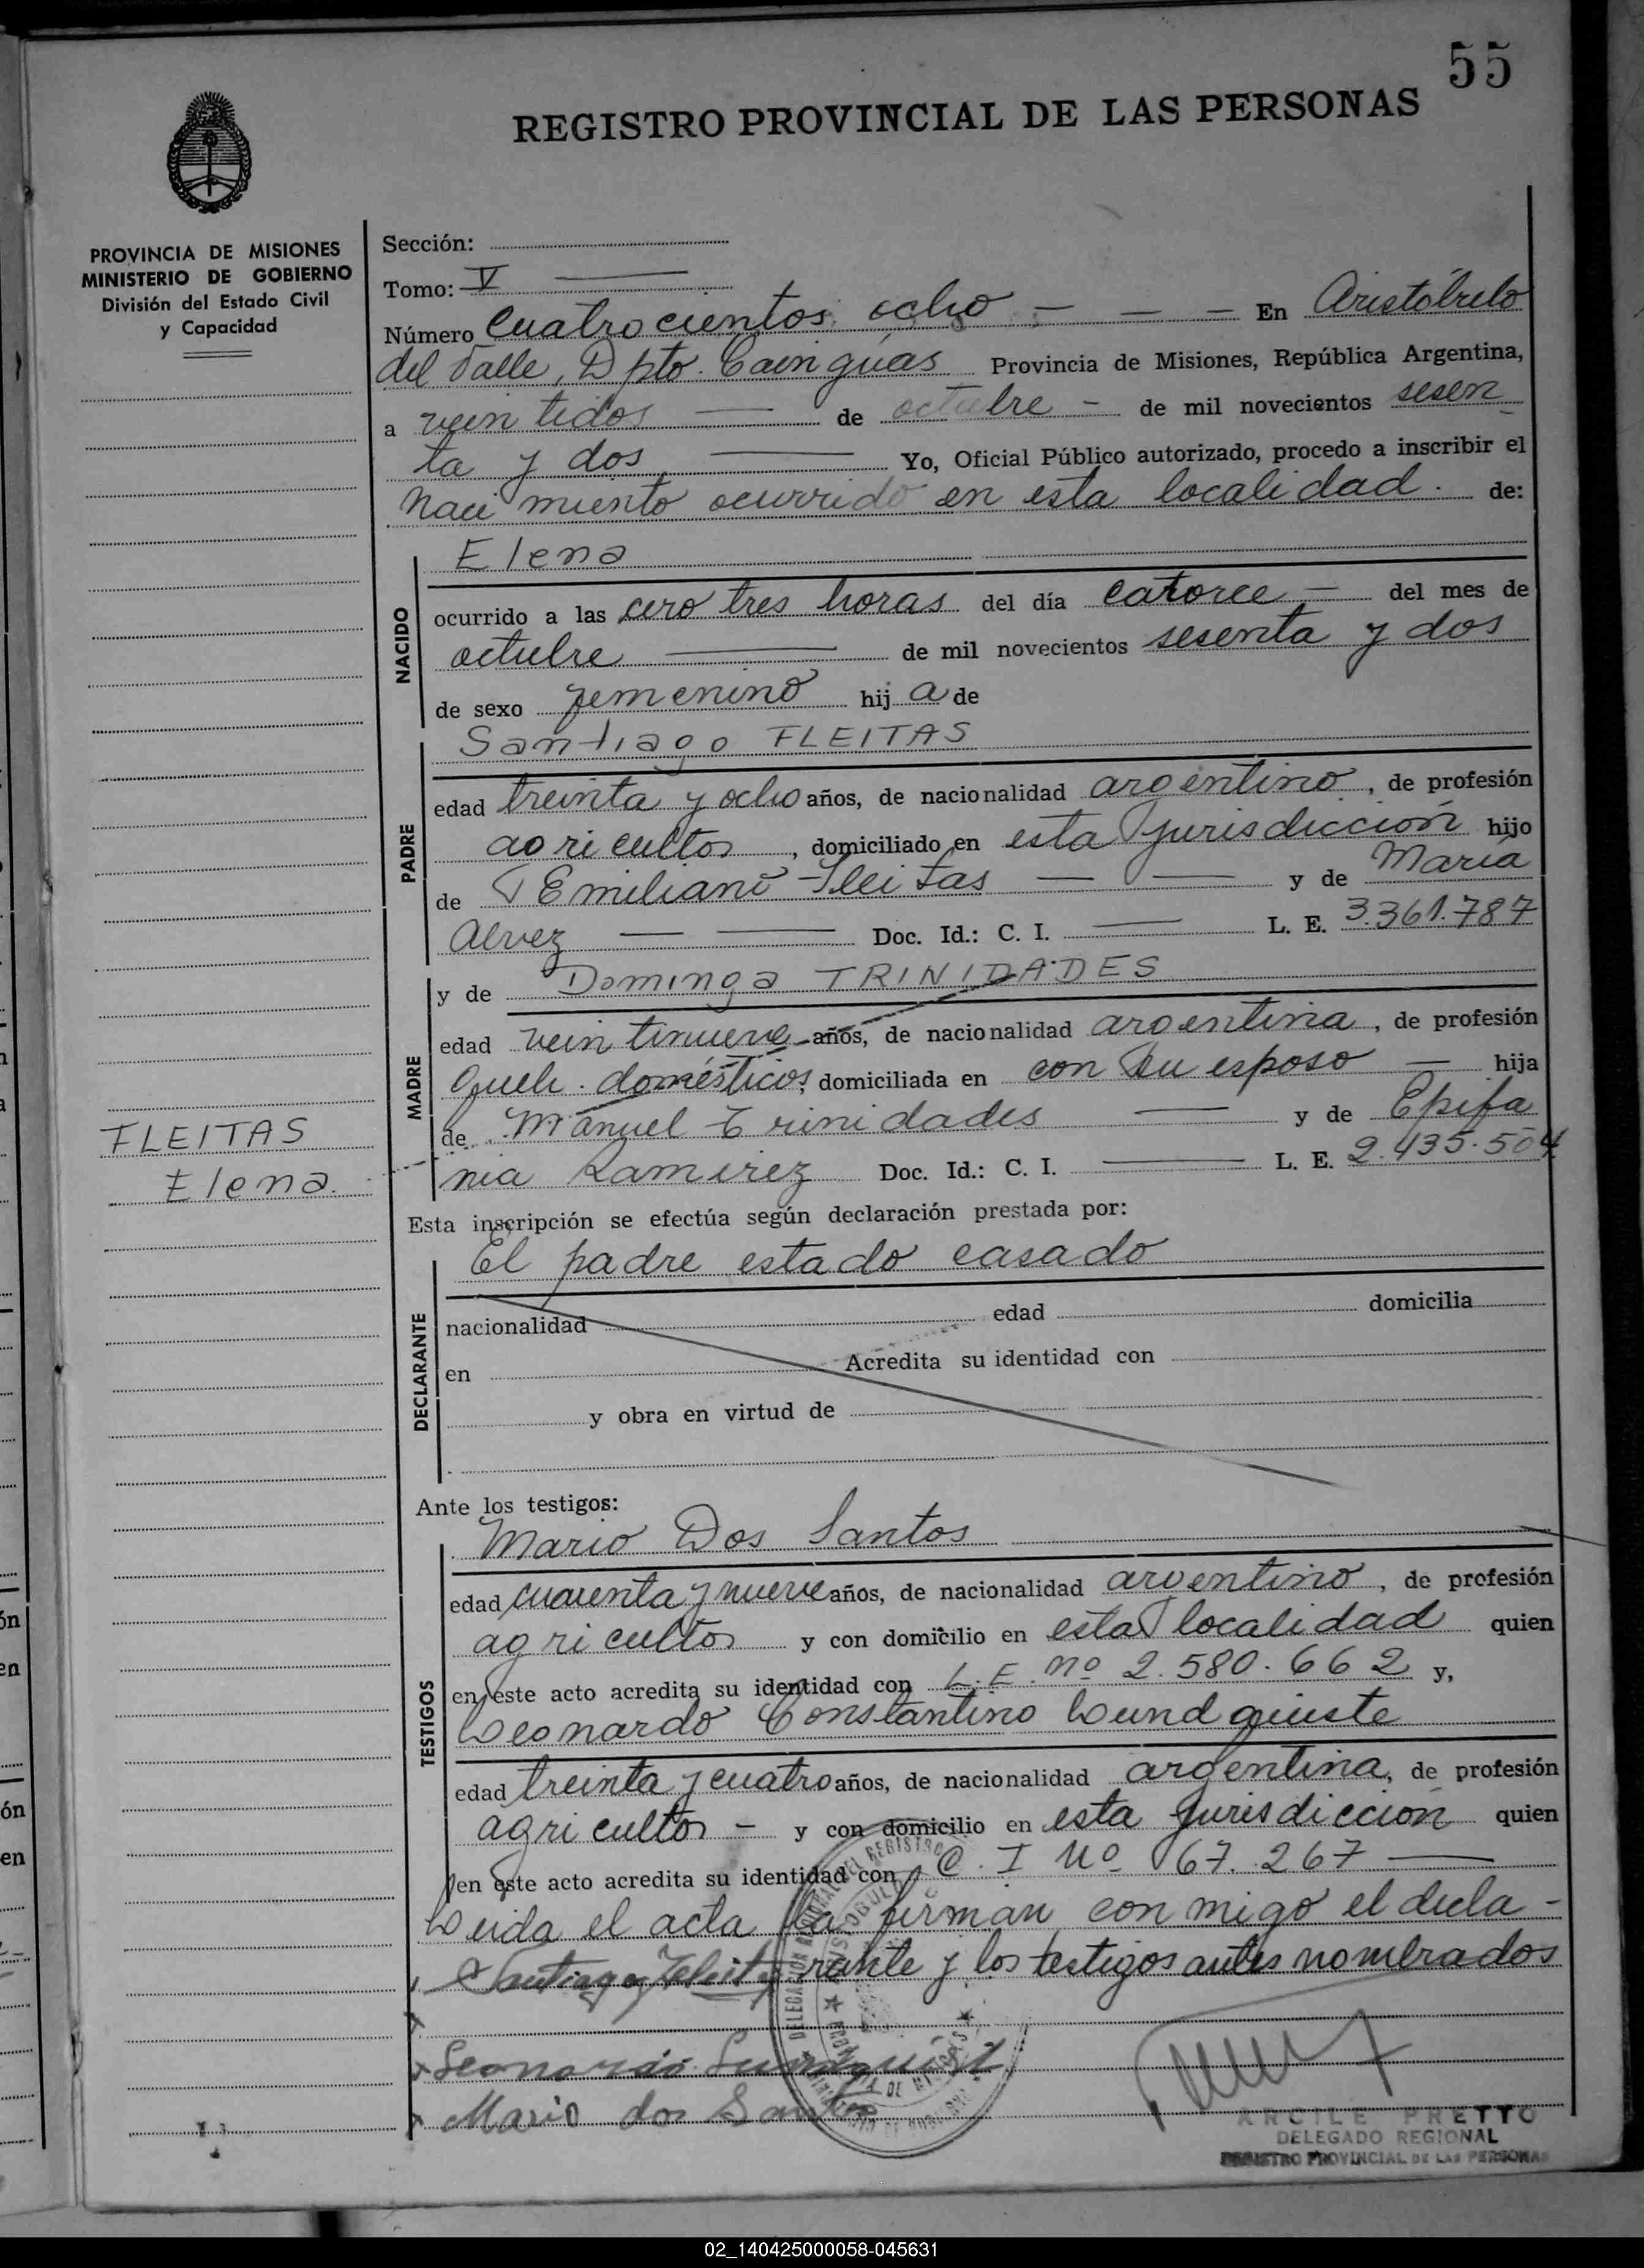 55
REGISTRO PROVINCIAL DE LAS PERSONAS
PROVINCIA DE MISIONES
MINISTERIO DE GOBIERNO
División del Estado Civil
y Capacidad
Sección:
Tomo: V
Número cuatrocientos ocho — — — En Aristóbulo
del Valle, Dpto. Cainguas Provincia de Misiones, República Argentina,
a veintidos — de octubre - de mil novecientos sesen
ta y dos — Yo, Oficial Público autorizado, procedo a inscribir el
nacimiento ocurrido en esta localidad. de:
NACIDO
Elena
ocurrido a las cero tres horas del día catorce — del mes de
octubre — de mil novecientos sesenta y dos
de sexo femenino hij a de
PADRE
Santiago FLEITAS
edad treinta y ocho años, de nacionalidad argentino, de profesión
agricultor, domiciliado en esta jurisdiccion hijo
de Emiliano Fleitas — — y de Maria
Alvez — — Doc. Id.: C. I. — L. E. 3.361.787
MADRE
y de Dominga TRINIDADES
edad veintinueve años, de nacionalidad argentina, de profesión
queh. domésticos, domiciliada en con su esposo — hija
de Manuel Trinidades — y de Epifa
nia Ramirez Doc. Id.: C. I. — L. E. 2.435.504
FLEITAS
Elena.
Esta inscripción se efectúa según declaración prestada por:
DECLARANTE
El padre estado casado
nacionalidad edad domicilia
en Acredita su identidad con
y obra en virtud de
Ante los testigos:
TESTIGOS
Mario Dos Santos
edad cuarenta y nueve años, de nacionalidad argentino, de profesión
agricultor y con domicilio en esta localidad quien
en este acto acredita su identidad con L.E. nº 2.580.662 y,
Leonardo Constantino Lundquiste
edad treinta y cuatro años, de nacionalidad argentina, de profesión
agricultor - y con domicilio en esta jurisdiccion quien
en este acto acredita su identidad con C. I Nº 67.267 —
Leida el acta la firman con migo el decla-
Santiago Fleitas rante y los testigos antes nombrados
Leonardo Lundquist
Mario dos Santos
ARCILE PRETTO
DELEGADO REGIONAL
REGISTRO PROVINCIAL DE LAS PERSONAS
02_140425000058-045631